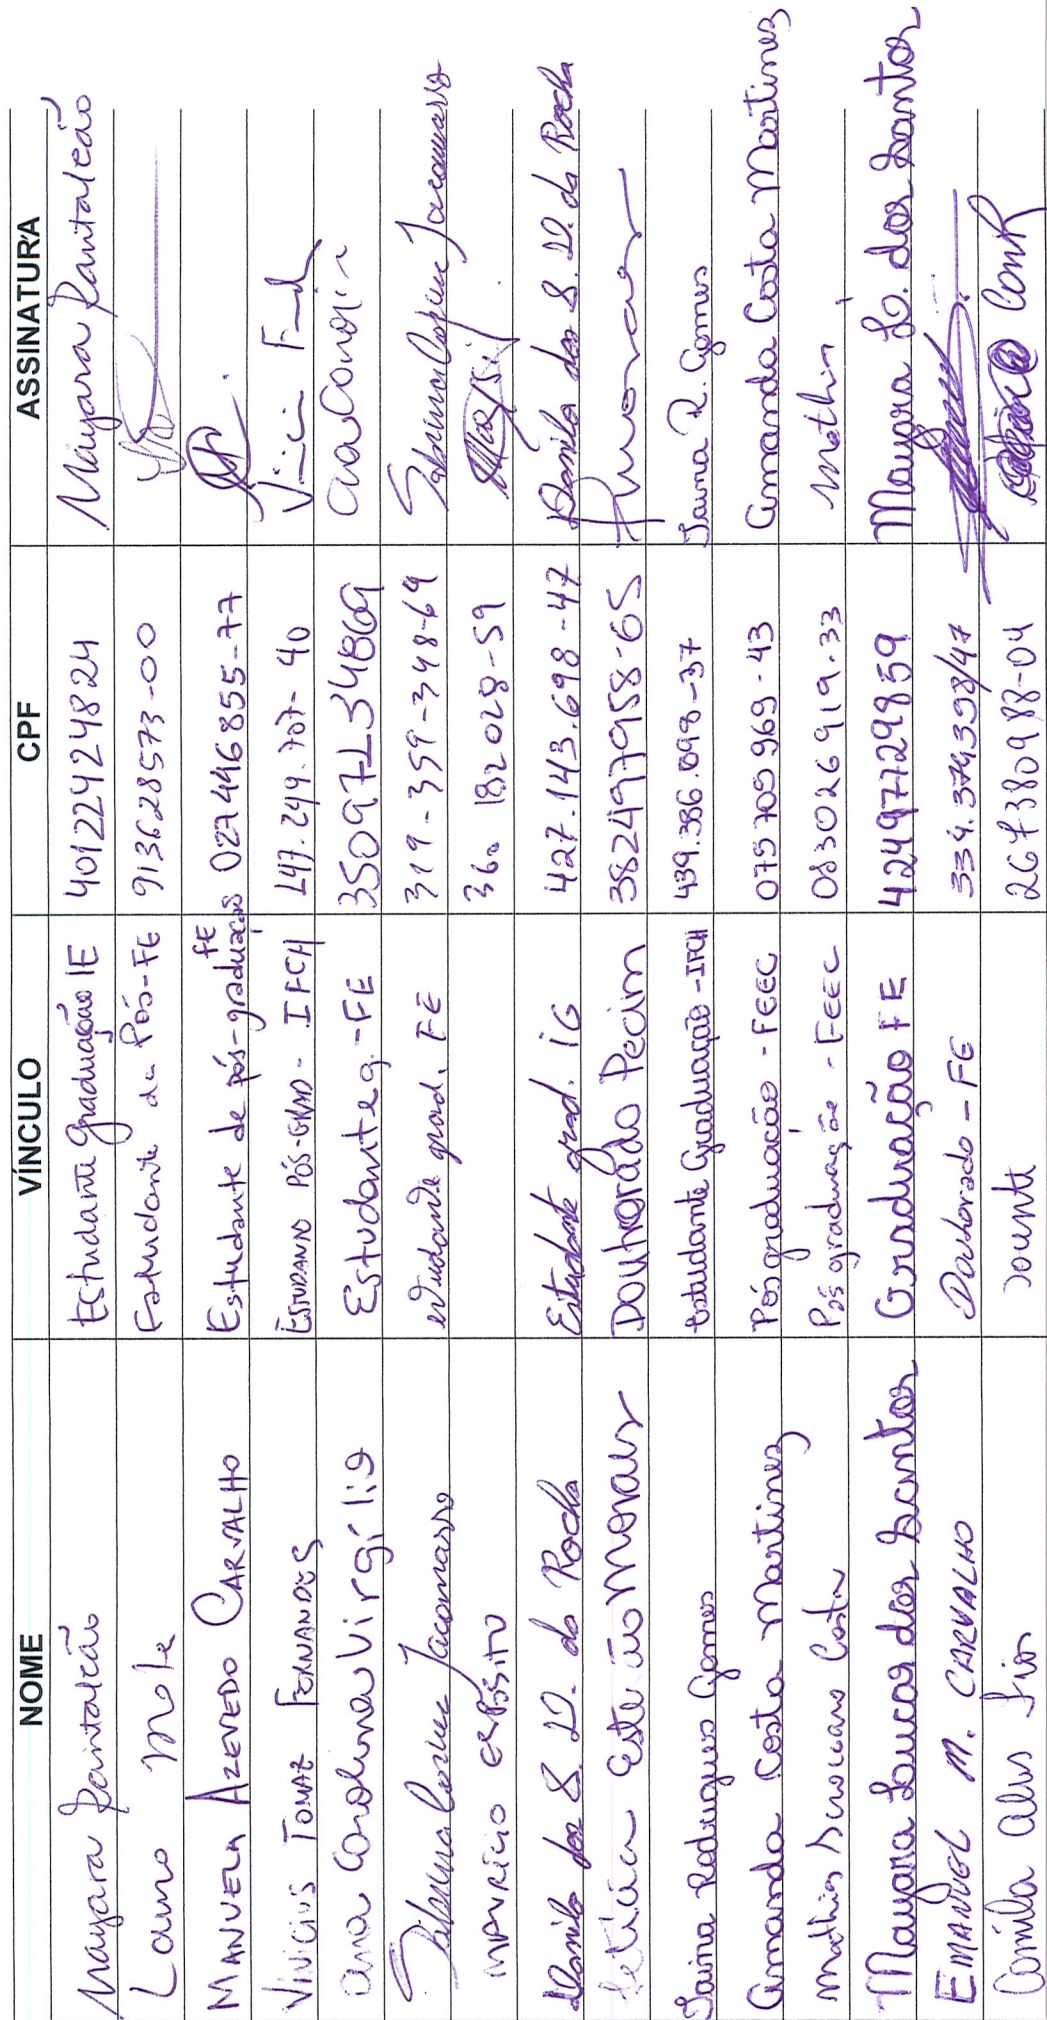 NOME VÍNCULO CPF ASSINATURA
Mayara Pantaleão Estudante Graduação IE 40122424824 Mayara Pantaleão
Estudante de Pós-FE 91362855573-00
MANUELA AZEVEDO CARVALHO Estudante de pós-graduação FE 027446855-77
VINICIUS TOMAZ FERNANDES ESTUDANTE PÓS-GRAD - IFCH 147.249.707-40
Ana Carolina Virgilio Estudante g.-FE 35097134869
Sabrina Jacomasso estudante grad. FE 319-359-348-64 Sabrina Jacomasso
MAURÍCIO ESPÓSITO 360 182028-59
Danilo dos S. D. da Rocha Estudante grad. IG 427.143.698-47 Danilo dos S. D. da Rocha
Letícia Estevão Morais Doutorado Pecim 382497958-65
Taina Rodrigues Gomes Estudante Graduação-IFCH 439.386.098-37 Taina R. Gomes
Amanda Costa Martinez Pós graduação - FEEC 075705969-43 Amanda Costa Martinez
Mathias Costa Pós graduação - FEEC 083026919.33
Mayara L. dos Santos Graduação FE 42497729859 Mayara L. dos Santos
EMANUEL M. CARVALHO Doutorado - FE 334.374398/47
Camila Alves 267380988-04